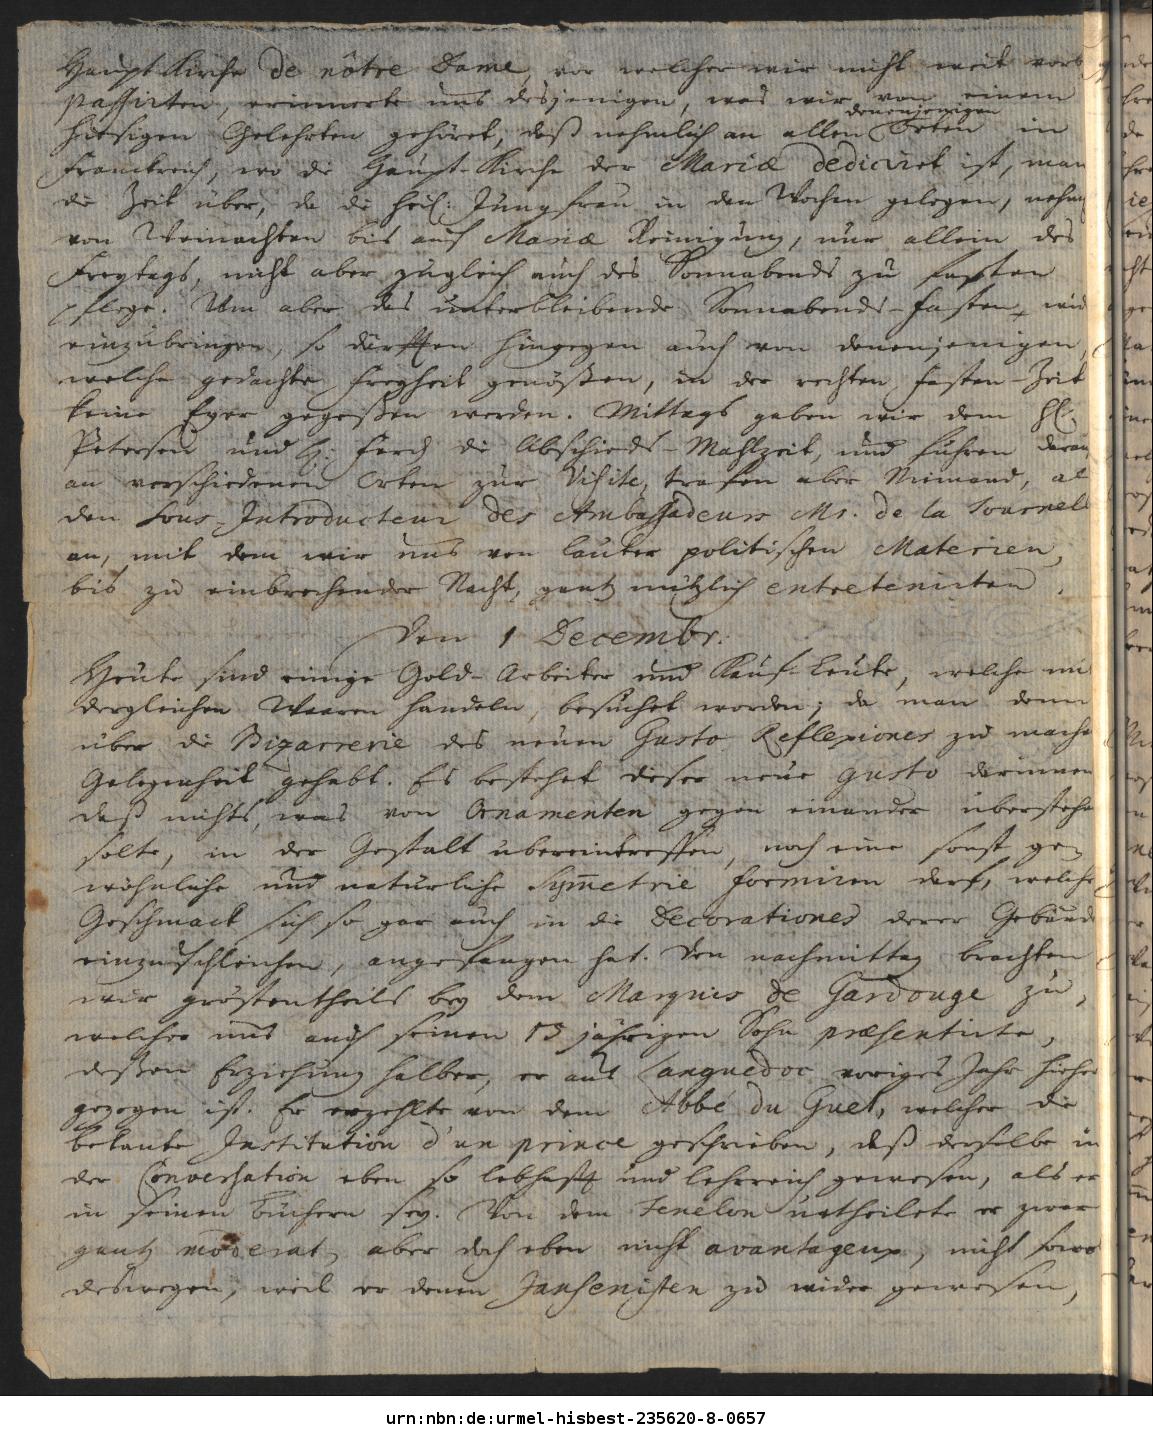 Haupt Kirche de nôtre Dame, vor welcher wir nicht weit vorb
passirten, erinnerte uns desjenigen, was wir von einem
hiesigen Gelehrten gehöret, daß nehmlich an allen denenjenigen Orten in
Franckreich, wo die Haupt-Kirche der Mariæ dediciret ist, man
die Zeit über, da die heil: Jungfrau in den Wochen gelegen, nehml
von Weinachten bis auf Mariæ Reinigung, nur allein des
Freytags, nicht aber zugleich auch des Sonnabends zu fasten
pflege. Um aber das unterbleibende Sonnabends-Fasten, wied
einzubringen, so dürfften hingegen auch von denenjenigen,
welche gedachte Freyheit genößen, in der rechten Fasten-Zeit
keine Eyer gegeßen werden. Mittags gaben wir dem H.
Petersen und H. Ferch die Abschieds-Mahlzeit, und fuhren darau
an verschiedenen Orten zur Visite, trafen aber Niemand, al
den Sous-Introducteur des Ambassadeurs Mr. de la Tournel
an, mit dem wir uns von lauter politischen Materien,
bis zu einbrechender Nacht, gantz nützlich entretenirten.
Den 1 Decembr.
Heute sind einige Gold-Arbeiter und Kauf-Leute, welche mi
dergleichen Waaren handeln, besuchet worden; da man denn
über die Bizarrerie des neuen Gusto Reflexiones zu mache
Gelegenheit gehabt. Es bestehet dieser neue gusto darinnen
daß nichts, was von Ornamenten gegen einander überstehe
solte, in der Gestalt übereintreffen, noch eine sonst ge-
wöhnliche und natürliche Sym̄etrie formiren darf, welche
Geschmack sich so gar auch in die Decorationes derer Gebäude
einzuschleichen, angefangen hat. Den nachmittag brachten
wir gröstentheils bey dem Marquis de Gardouge zu,
welcher uns auch seinen 13 jährigen Sohn præsentirte,
deßen Erziehung halber, er aus Languedoc voriges Jahr hieher
gezogen ist. Er erzehlte von dem Abbé du Guet, welcher die
bekante Institution d'un prince geschrieben, daß derselbe in
der Conversation eben so lebhafft und lehrreich gewesen, als er
in seinen Büchern sey. Von dem Fenelon urtheilete er zwar
gantz moderat, aber doch eben nicht avantageux, nicht sowo
deswegen, weil er denen Jansenisten zu wider gewesen,
urn:nbn:de:urmel-hisbest-235620-8-0657